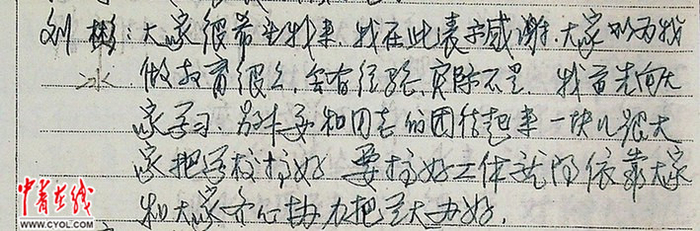 刘彬：大家很希望我来，我在此表示感谢，大家以为我
冰 做教育很久，会有经验，实际不是，我首先向大
家学习，最重要和同志的团结起来一块儿跟大
家把学校搞好 要搞好工作就得依靠大家
和大家齐心协力把 大办好。
中青在线
WWW.CYOL.COM